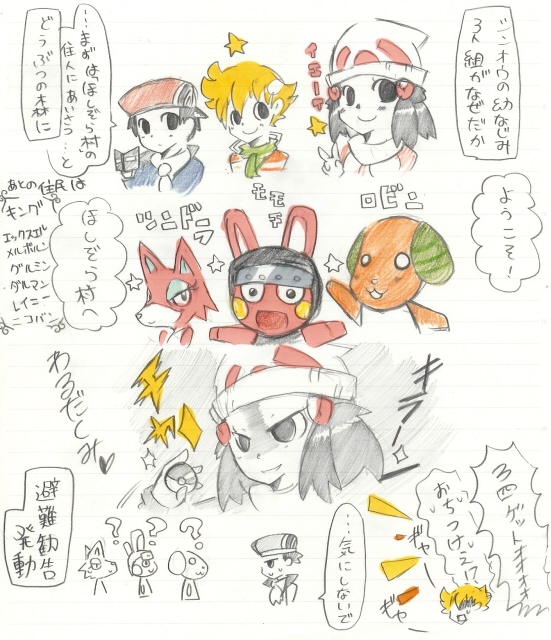 シンオウの幼なじみ
3人組がなぜだか
どうぶつの森に
…まずはほしぞら村の
住人にあいさつ…と
イエーイ
ようこそ!
ほしぞら村へ
ロビン
モモチ
ツンドラ
あとの住民は
キング
エックスエル
メルボルン
グルミン
ダルマン
レイニー
ニコバン
キラーン
わるだくみ♡
3匹ゲットオオオオ
おちつけえ!?
ギャー
ギャー
…気にしないで
???
避難勧告
発動